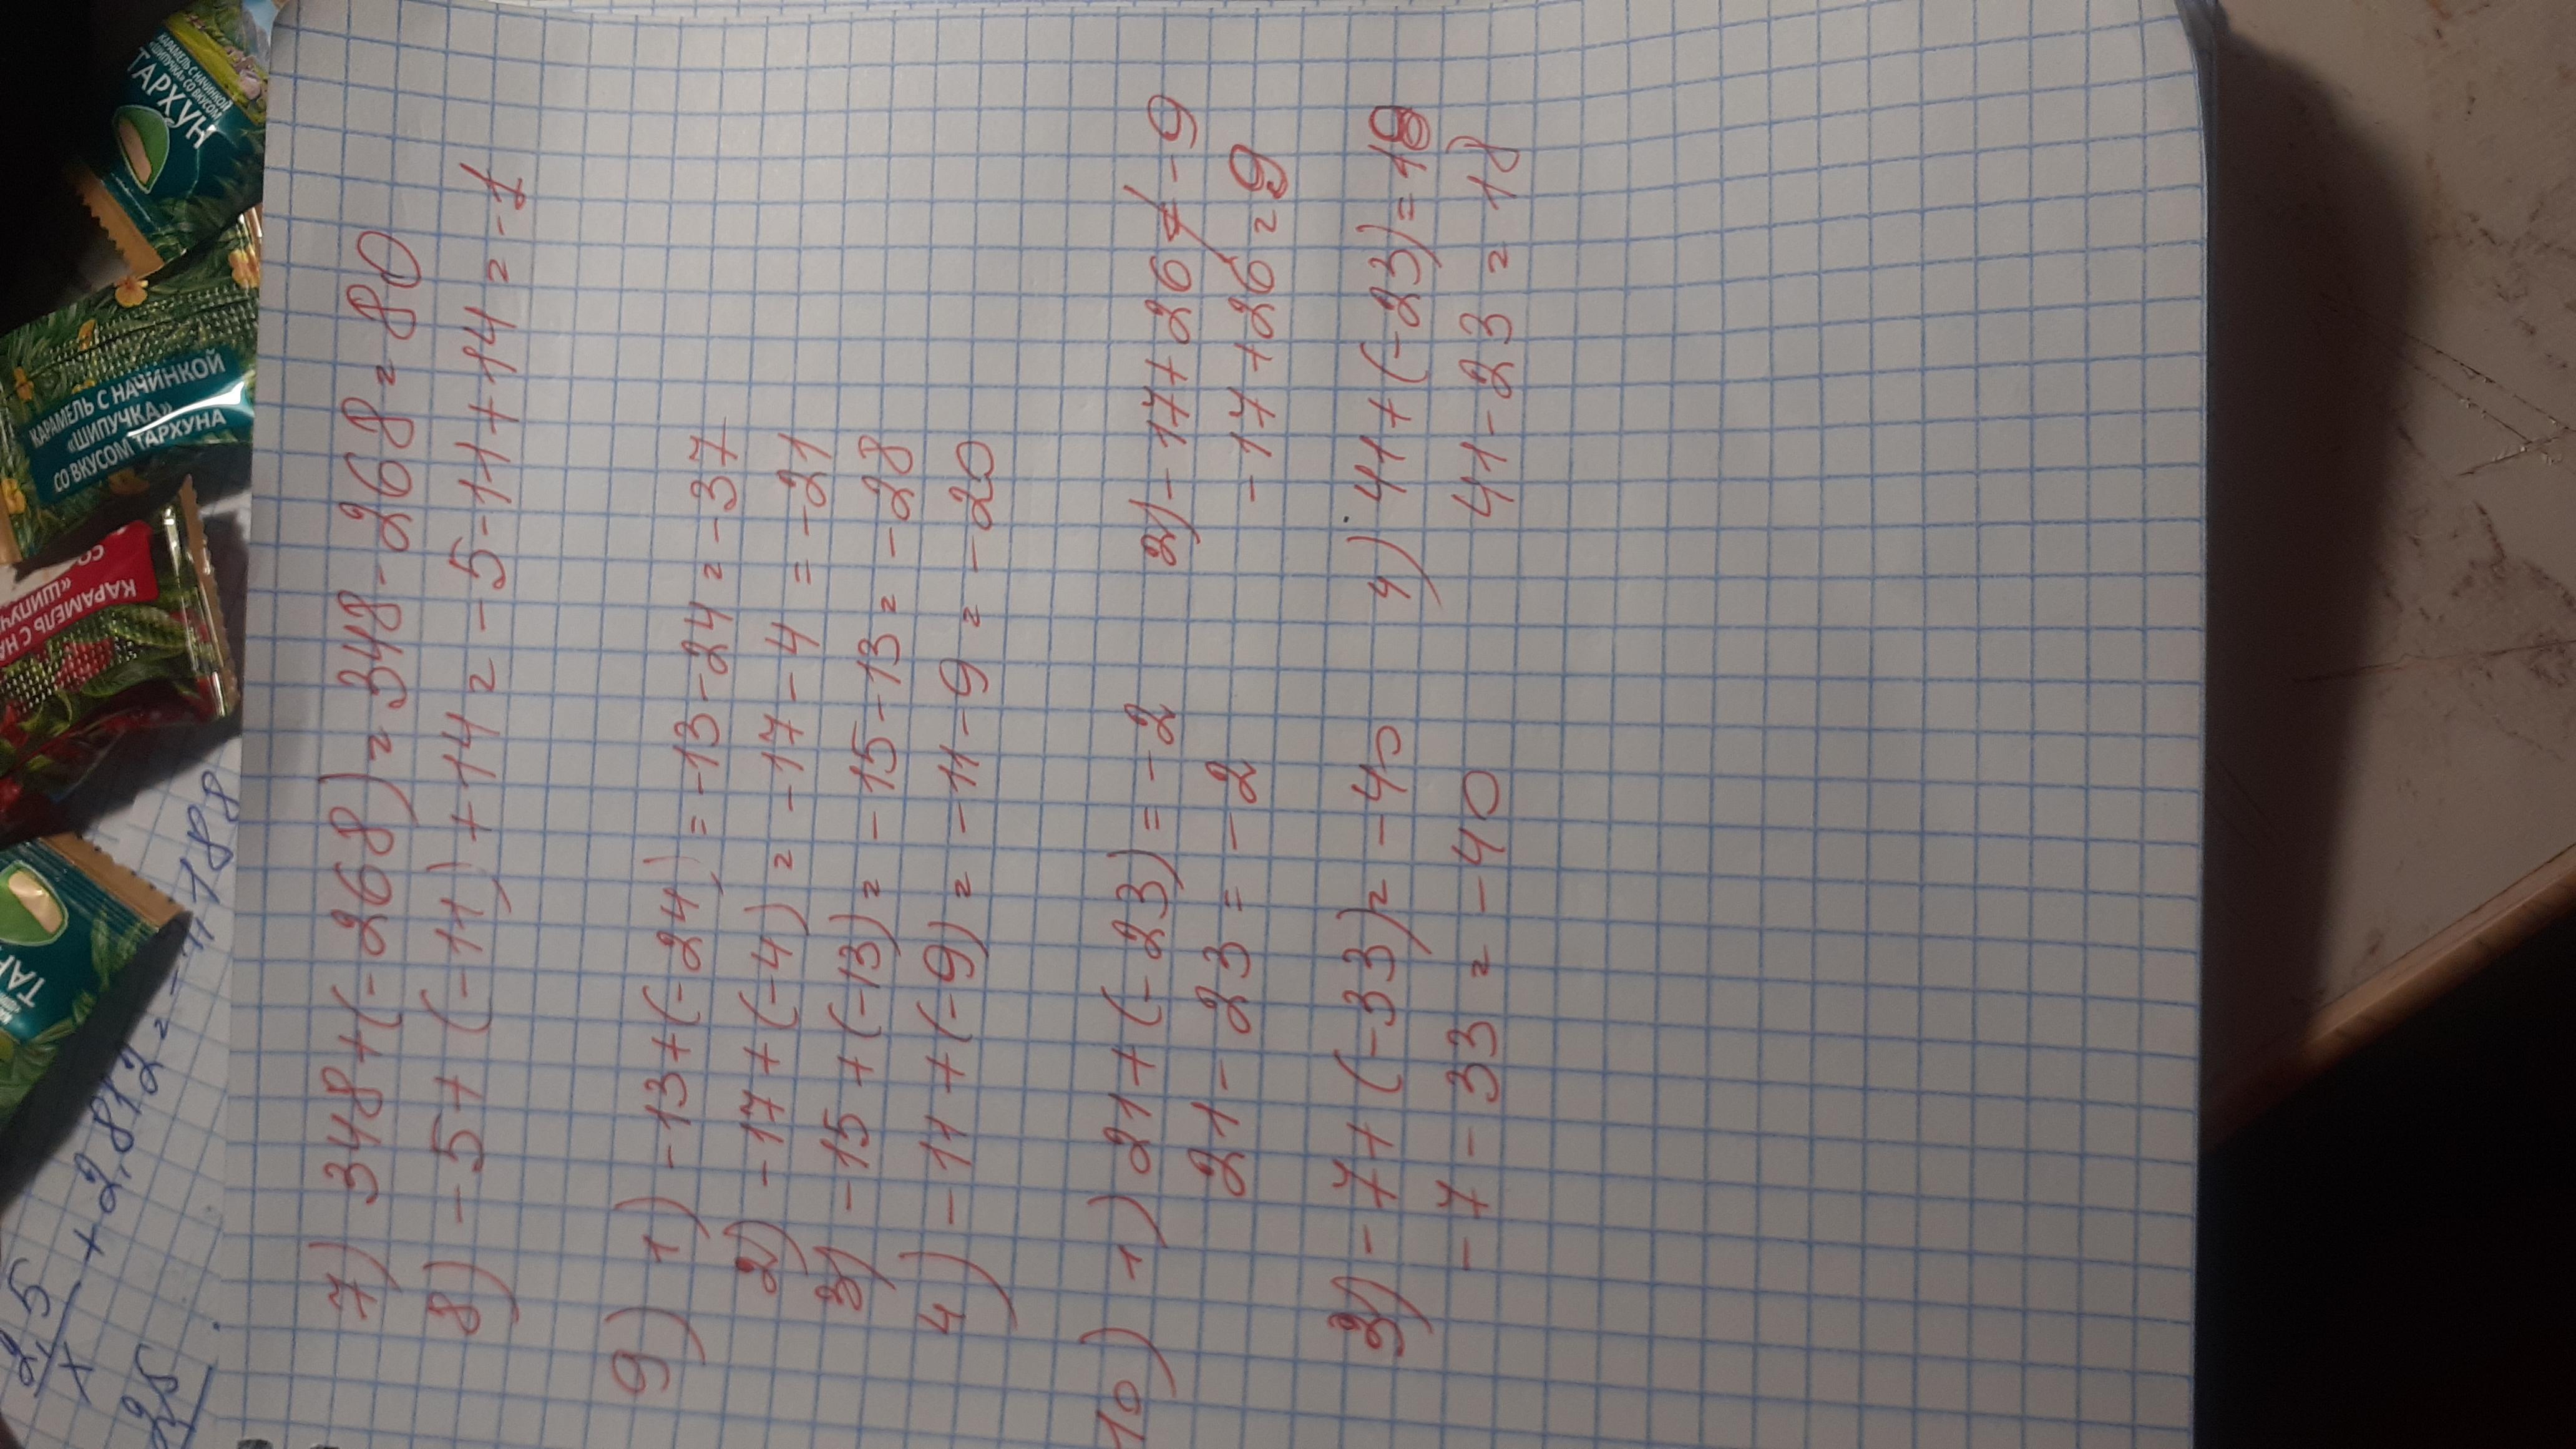 7) 348+(-268)=348-268=80
8) -5+(-11)+14=-5-11+14=-1
9) 1) -13+(-24)=-13-24=-37
2) -17+(-4)=-17-4=-21
3) -15+(-13)=-15-13=-28
4) -11+(-9)=-11-9=-20
10) 1) 21+(-23)=-2
21-23=-2
2) -17+26≠-9
-17+26=9
3) -7+(-33)=-40
-7-33=-40
4) 41+(-23)=18
41-23=18
КАРАМЕЛЬ С НАЧИНКОЙ
«ШИПУЧКА» СО ВКУСОМ
ТАРХУН
КАРАМЕЛЬ С НАЧИНКОЙ
«ШИПУЧКА»
СО ВКУСОМ ТАРХУНА
КАРАМЕЛЬ С НА
«ШИПУЧ
СО
ТАР
2,5
x
+2,812=
188
25